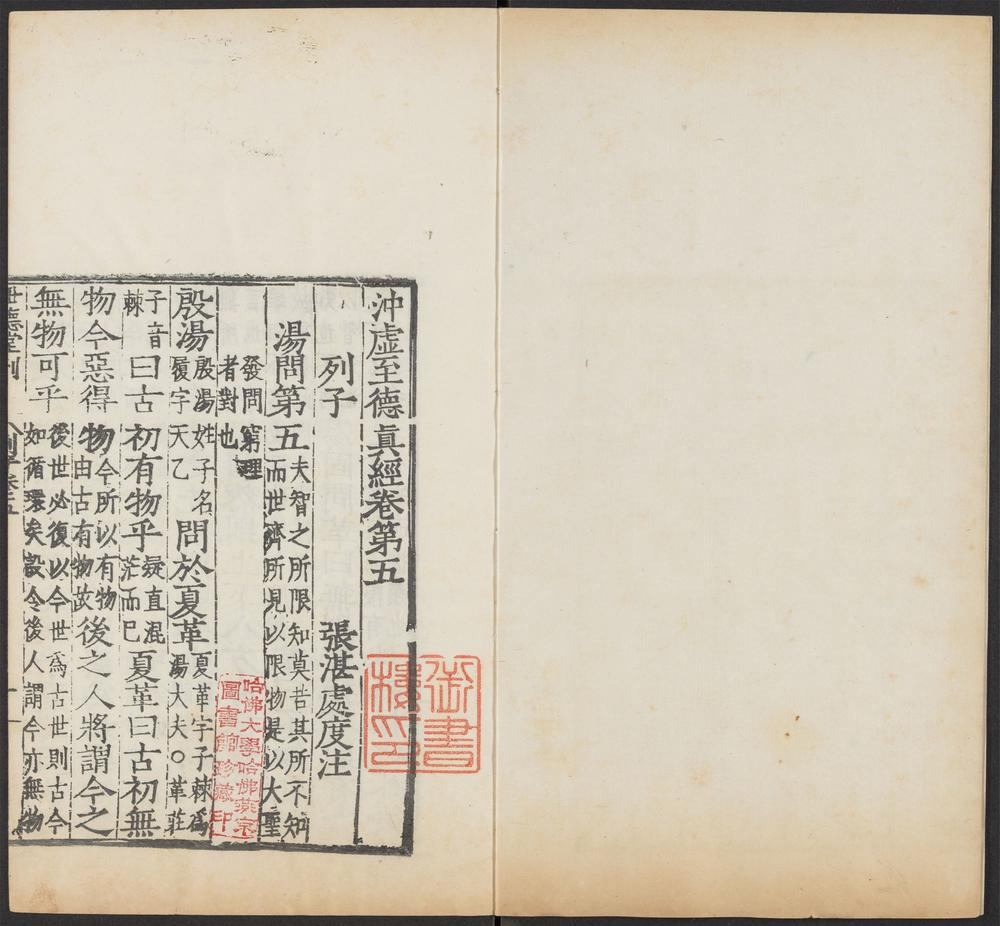 沖虛至德真經卷第五
列子 張湛處度注
湯問第五夫智之所限知莫若其所不知而世齊所見以限物是以大聖
發問窮理者對也
殷湯殷湯姓子名履字天乙問於夏革夏革字子棘爲湯大夫○革莊
子音棘曰古初有物乎疑直混茫而已夏革曰古初無
物今惡得物今所以有物由古有物故後之人將謂今之
無物可乎後世必復以今世爲古世則古今如循環矣設令後人謂今亦無物
世德堂刊 列子卷五 一
御書樓印
哈佛大學哈佛燕京圖書館珍藏印